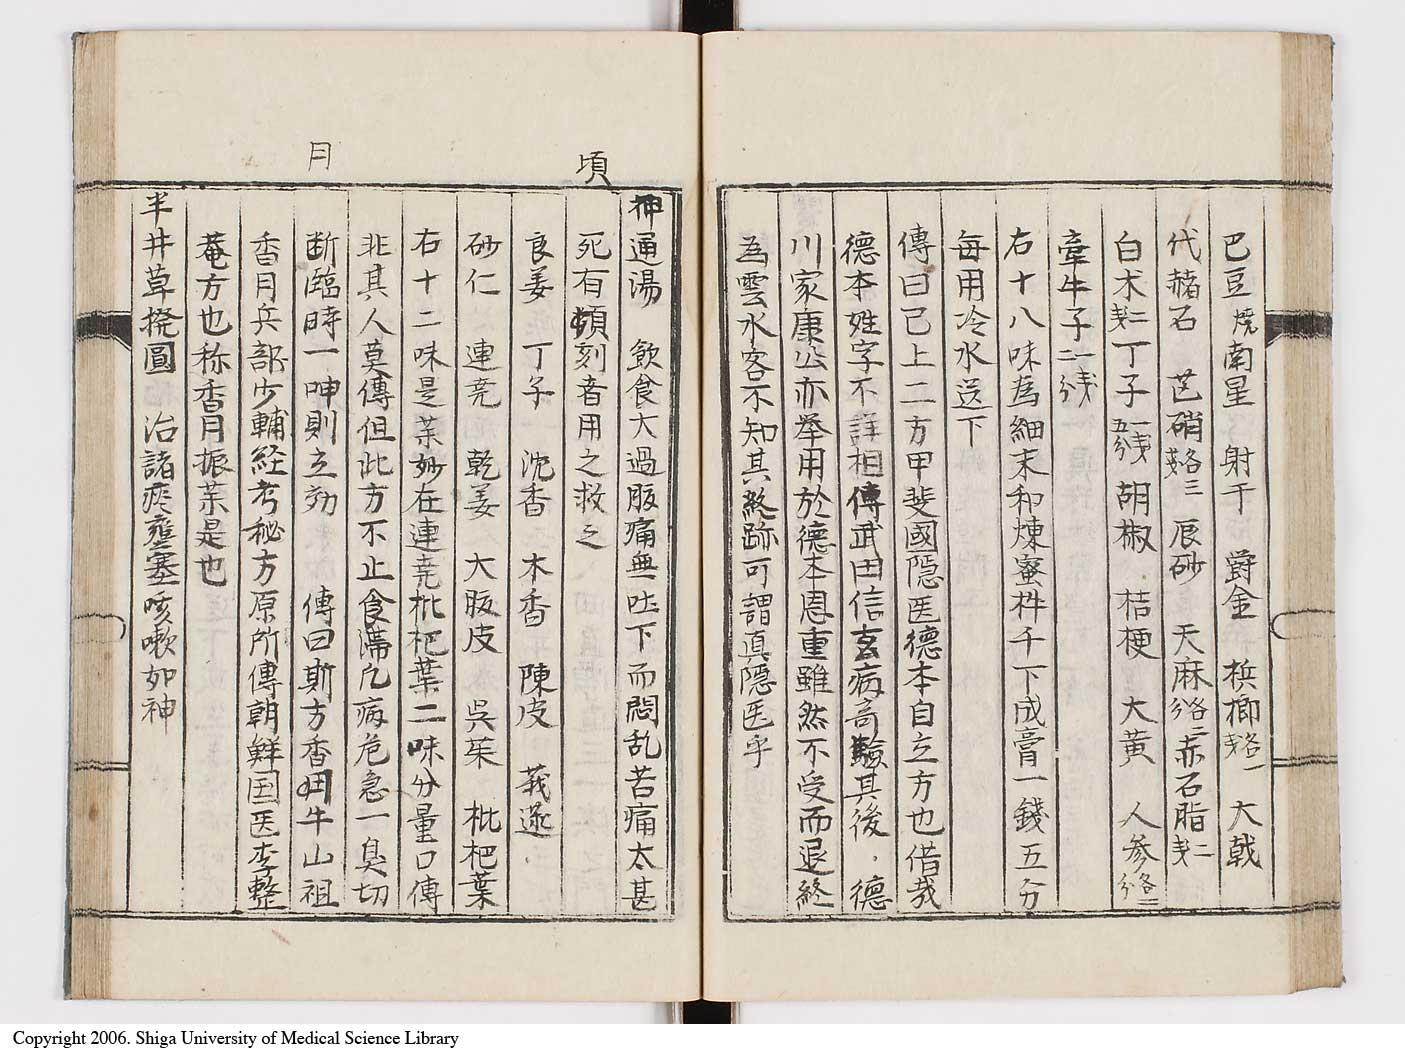 巴豆焼南星 射干 欝金 梹榔各一戔 大戟
代赭石 芒硝各三戔 辰砂 天麻各二分赤石脂二戔
白术二戔丁子一戔五分 胡椒 桔梗 大黄 人参各二分
牽牛子一戔二分
右十八味為細末和煉蜜杵千下成膏一錢五分
毎用冷水送下
傳曰已上二方甲斐國隠医德本自立方也借哉
德本姓字不詳相傳武田信玄病奇驗其後德
川家康公亦挙用於德本恩重雖然不受而退終
為雲水客不知其終跡可謂真隠医乎
神通湯 飲食大過腹痛無吐下而悶乱苦痛太甚
頃
死有頻刻者用之救之
良姜 丁子 沈香 木香 陳皮 莪蒁
砂仁 連尭 乾姜 大腹皮 呉茱 枇杷葉
右十二味是茱妙在連尭枇杷葉二味分量口傳
非其人莫傳但此方不止食滞凡病危急一臭切
月
断臨時一呻則立効 傳曰斯方香田牛山祖
香月兵部少輔経考秘方原所傳朝鮮国医李整
菴方也称香月振茱是也
半井草撓圓 治諸痰壅塞咳嗽如神
Copyright 2006. Shiga University of Medical Science Library